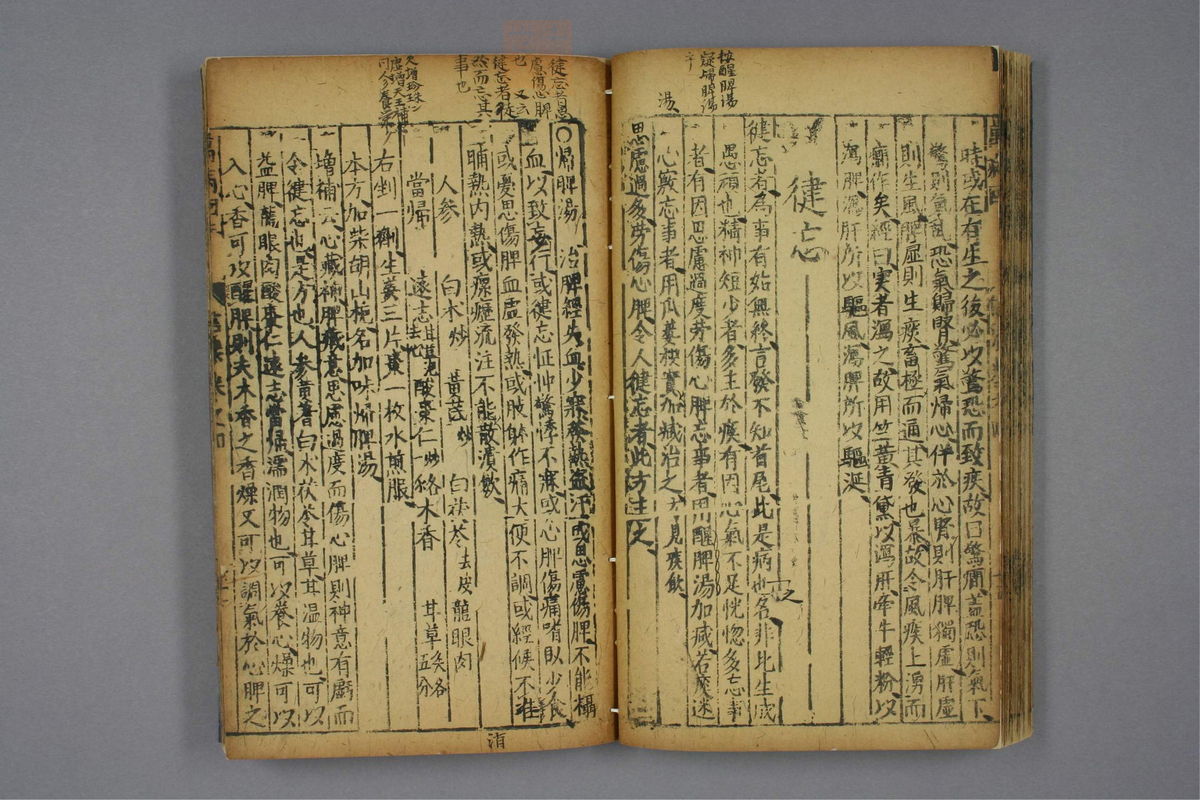 時或在有生之後必以驚恐而致疾故曰驚癎蓋恐則氣下
驚則氣亂恐氣歸腎驚氣帰心併於心腎則肝脾獨虛肝虛
則生風脾虛則生痰畜極而通其後也暴故令風痰上湧而
癎作矣經曰実者瀉之故用竺黃青黛以瀉肝牽牛輕粉以
瀉脾瀉肝所以驅風瀉脾所以驅涎
健忘
健忘者為事有始無終言發不知首尾此是病也名非比生成
愚頑也精神短少者多主於痰有因心氣不足恍惚多忘事
者有因思慮過度劳傷心脾忘事者用醒脾湯加减若痰迷
心竅忘事者用瓜蔞枳實湯加减治之方見痰飲
思慮過多劳傷心脾令人健忘者此方主之
按醒脾湯
疑歸脾湯
〇歸脾湯 治脾經失血少寐發熱盗汗或思慮傷脾不能攝
血以致妄行或健忘怔忡驚悸不寐或心脾傷痛嗜臥少食
或憂思傷脾血虛發熱或肢躰作痛大便不調或經候不准
晡熱内熱或瘰癧流注不能散潰飲
人參 白木炒 黃茋炒 白茯苓去皮 龍眼肉
當帰 遠志 酸棗仁炒 木香 甘草五分
右剉一劑生薑三片棗一枚水煎服
本方加柴胡山梔名加味歸脾湯
增補云心藏神脾藏意思慮過度而傷心脾則神意有虧而
令健忘也是方也人參黃耆白木茯苓甘草甘温物也可以
益脾龍眼肉酸棗仁遠志當帰濡潤物也可以養心燥可以
入心香可以醒脾則夫木香之香燥又可以調氣於心脾之
健忘者思
慮傷心脾
也 又云
健忘者
然而忘其
事也